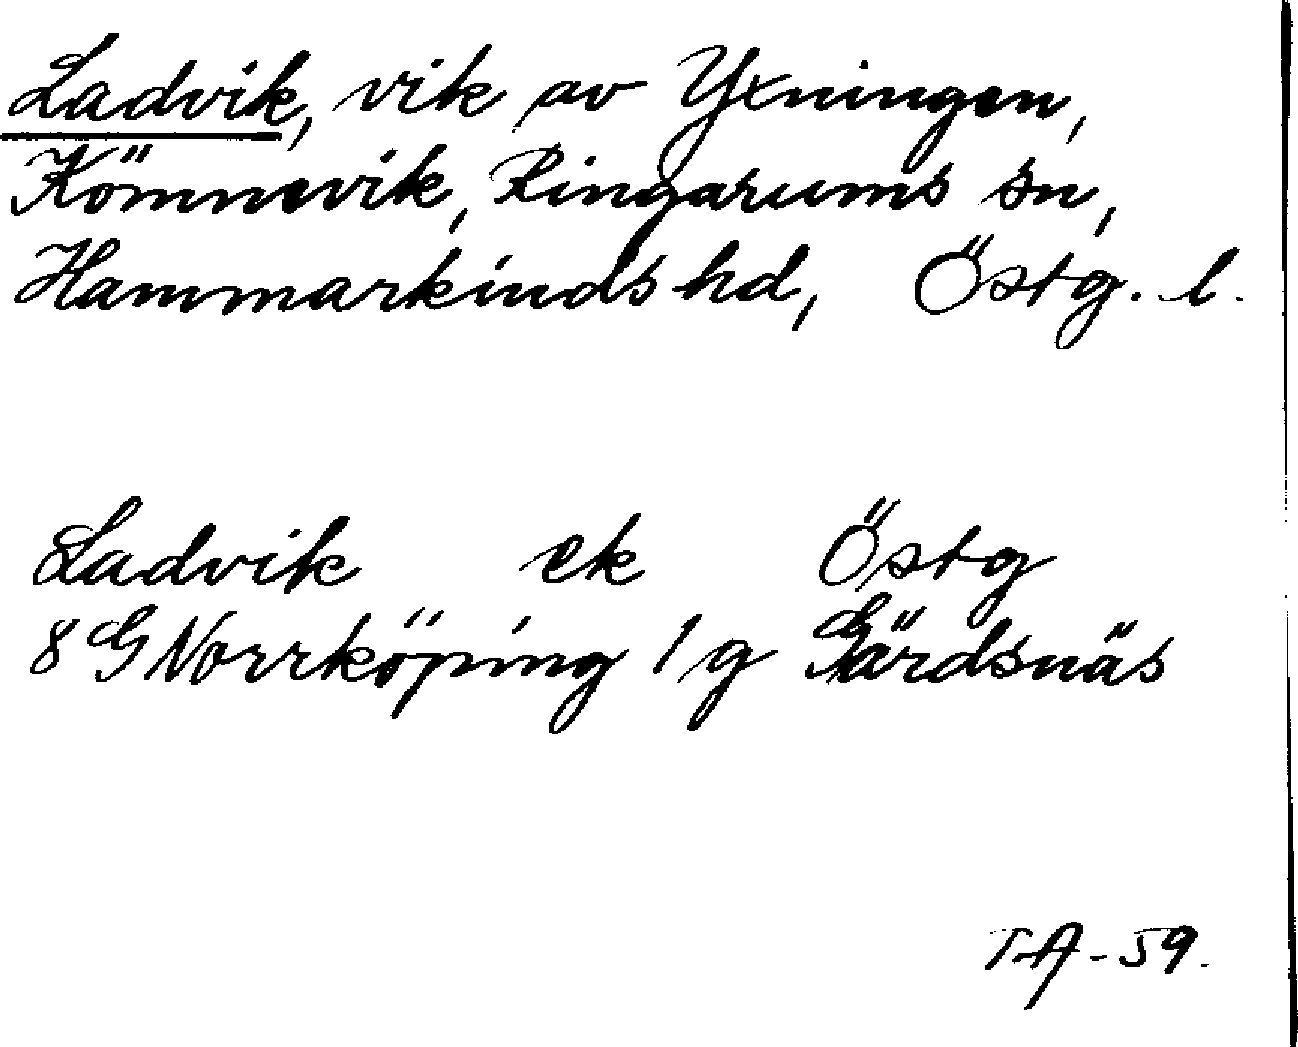 Ladvik, vik av Yxningen,
Kömnevik, Ringarums sn,
Hammarkinds hd, Östg. l.
Ladvik ek Östg
8 G Norrköping 1 g Gärdsnäs
T.A-59.